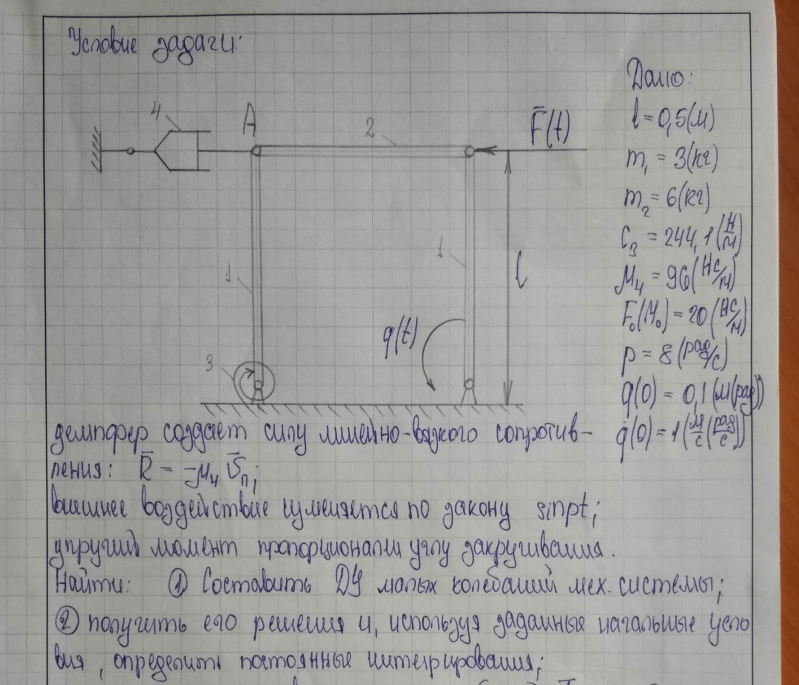 Условие задачи:
Дано:
l = 0,5 (м)
m₁ = 3 (кг)
m₂ = 6 (кг)
C₃ = 244,1 (Н/м)
μ₄ = 96 (Нс/м)
F₀(M₀) = 20 (Нс/м)
p = 8 (рад/с)
q(0) = 0,1 (м(рад))
q̇(0) = 1 (м/с (рад/с))
4
A
2
F̄(t)
1
1
l
q(t)
3
демпфер создает силу линейно-вязкого сопротив-
ления: R̄ = -μ₄ V̄п;
внешнее воздействие изменяется по закону sin pt;
упругий момент пропорционален углу закручивания.
Найти: ① Составить ДУ малых колебаний мех. системы;
② получить его решения и, используя заданные начальные усло
вия, определить постоянные интегрирования;